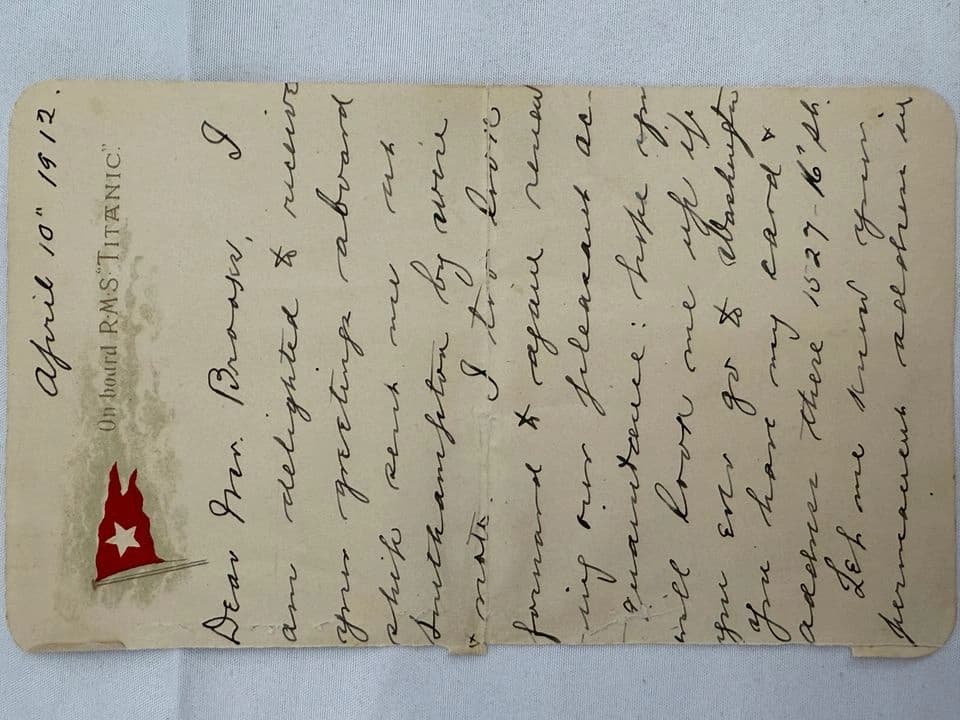 April 10" 1912.
On board R.M.S. "TITANIC."
Dear Mr. Brooks, I
am delighted to receive
your greetings aboard
ship sent me at
Southampton by wire
& note. I too look
forward to again renew
-ing our pleasant ac-
quaintance: hope you
will look me up if
you ever go to Washington
You have my card &
address there 1527-16" St.
Let me know your
permanent address in